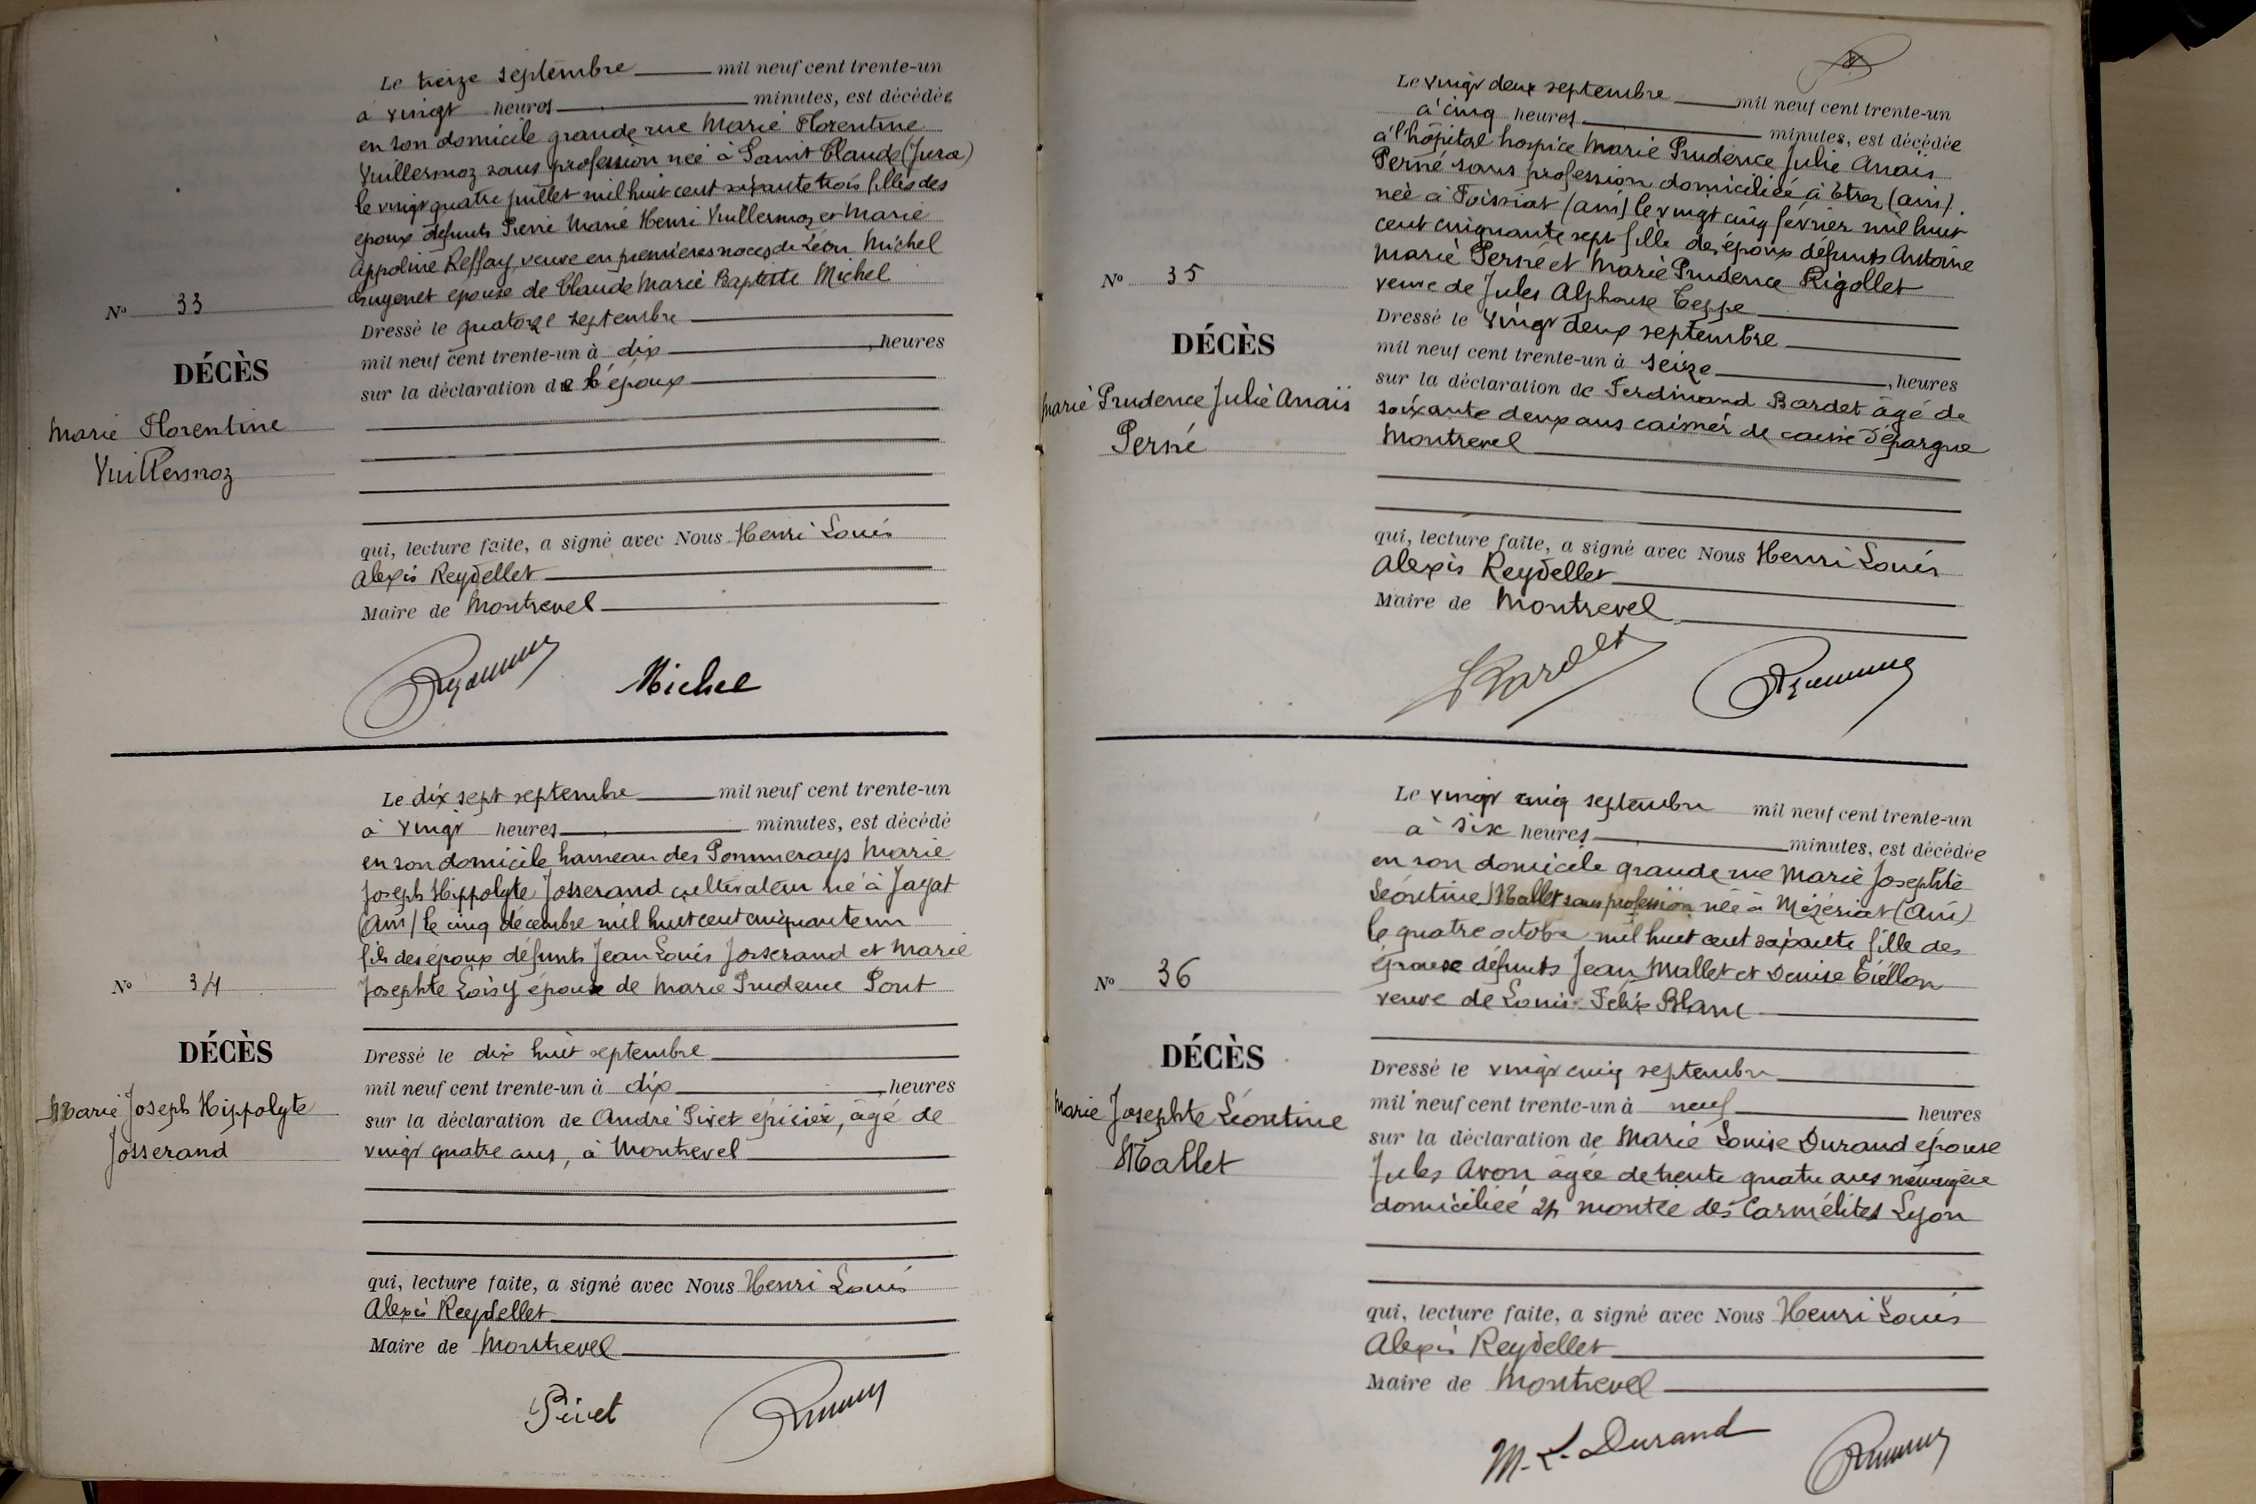 Le treize septembre mil neuf cent trente-un
à vingt heures minutes, est décédée
en son domicile grande rue Marie Florentine
Vuillermoz sans profession née à Saint Claude (Jura)
le vingt quatre juillet mil huit cent soixante trois filles des
époux défunts Pierre Marie Henri Vuillermoz et Marie
Appoline Reffay, veuve en premières noces de Léon Michel
épouse de Claude Marie Baptiste Michel
Nº 33
Dressé le quatorze septembre
mil neuf cent trente-un à dix , heures
DÉCÈS
sur la déclaration de l'époux
Marie Florentine
Vuillermoz
qui, lecture faite, a signé avec Nous Henri Louis
Alexis Reydellet
Maire de Montrevel
Michel
Le dix sept septembre mil neuf cent trente-un
à vingt heures minutes, est décédé
en son domicile hameau des Pommerays Marie
Joseph Hippolyte Josserand cultivateur né à Jayat
(Ain) le cinq décembre mil huit cent cinquante un
fils des époux défunts Jean Louis Josserand et Marie
Josephte Loisy époux de Marie Prudence Pont
Nº 34
DÉCÈS
Dressé le dix huit septembre
mil neuf cent trente-un à dix , heures
Marie Joseph Hippolyte
Josserand
sur la déclaration de André Pivet épicier, âgé de
vingt quatre ans, à Montrevel
qui, lecture faite, a signé avec Nous Henri Louis
Alexis Reydellet
Maire de Montrevel
Pivet
Le vingt deux septembre mil neuf cent trente-un
à cinq heures minutes, est décédée
à l'hôpital hospice Marie Prudence Julie Anaïs
Perné sans profession domiciliée à Etrez (Ain).
née à Foissiat (Ain) le vingt cinq février mil huit
cent cinquante sept fille des époux défunts Antoine
Marie Perné et Marie Prudence Rigollet
veuve de Jules Alphonse Teppe
Nº 35
DÉCÈS
Dressé le vingt deux septembre
mil neuf cent trente-un à seize , heures
Marie Prudence Julie Anaïs
Perné
sur la déclaration de Ferdinand Bardet âgé de
soixante deux ans caissier de caisse d'épargne
Montrevel
qui, lecture faite, a signé avec Nous Henri Louis
Alexis Reydellet
Maire de Montrevel
Bardet
Le vingt cinq septembre mil neuf cent trente-un
à six heures minutes, est décédée
en son domicile grande rue Marie Josephte
Léontine Mallet sans profession née à Mézériat (Ain)
le quatre octobre mil huit cent soixante fille des
époux défunts Jean Mallet et Denise
veuve de Louis Félix Blanc
Nº 36
DÉCÈS
Dressé le vingt cinq septembre
mil neuf cent trente-un à neuf heures
Marie Josephte Léontine
Mallet
sur la déclaration de Marie Louise Durand épouse
Jules Avon âgée de trente quatre ans ménagère
domiciliée montée des Carmélites Lyon
qui, lecture faite, a signé avec Nous Henri Louis
Alexis Reydellet
Maire de Montrevel
M. L. Durand